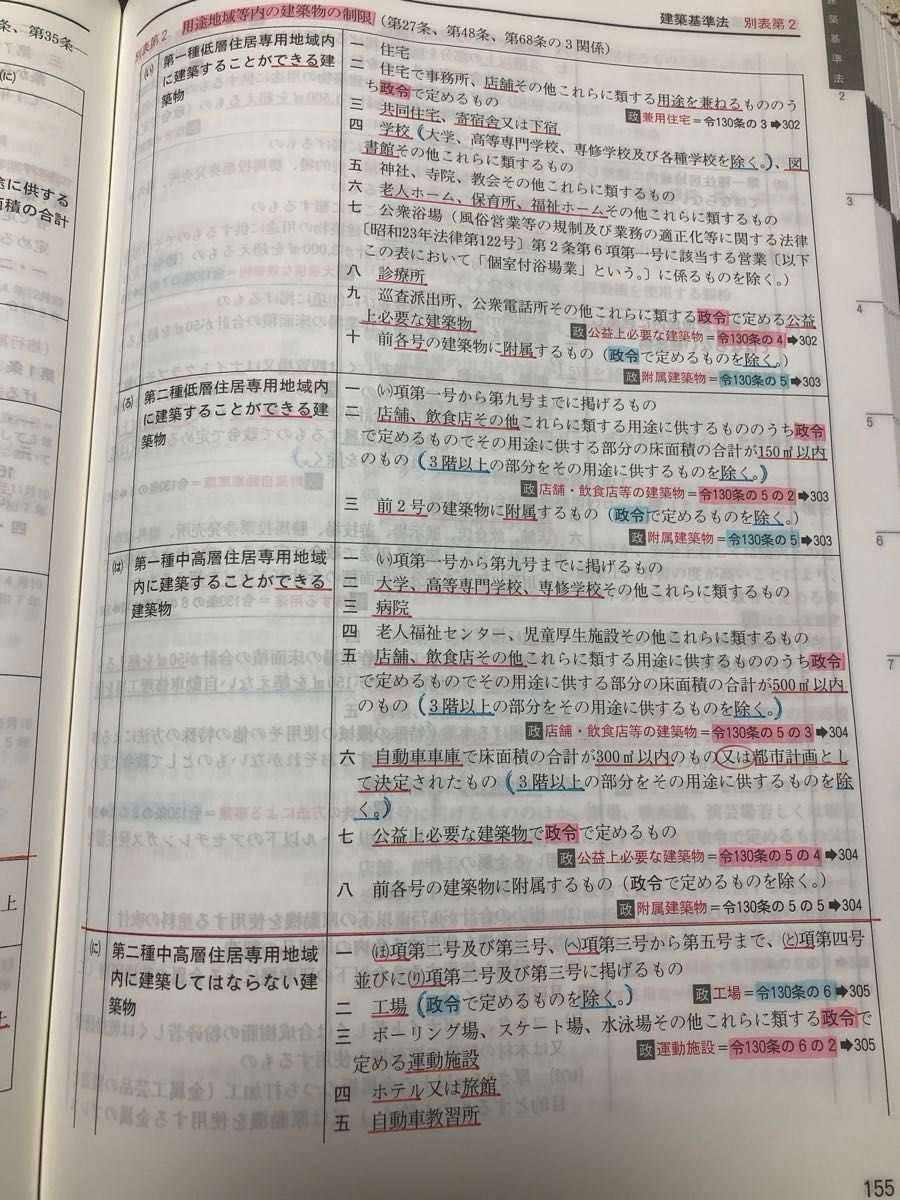 条、第35条―
(に)
途に供する
面積の合計
上
建築基準法　別表第２
建築基準法
2
3
4
5
6
7
別表第２　用途地域等内の建築物の制限（第27条、第48条、第68条の３関係）
(い)　第一種低層住居専用地域内に建築することができる建築物
一　住宅
二　住宅で事務所、店舗その他これらに類する用途を兼ねるもののう
ち政令で定めるもの
政 兼用住宅＝令130条の３➡302
三　共同住宅、寄宿舎又は下宿
四　学校（大学、高等専門学校、専修学校及び各種学校を除く。）、図
書館その他これらに類するもの
五　神社、寺院、教会その他これらに類するもの
六　老人ホーム、保育所、福祉ホームその他これらに類するもの
七　公衆浴場（風俗営業等の規制及び業務の適正化等に関する法律
〔昭和23年法律第122号〕第２条第６項第一号に該当する営業〔以下
この表において「個室付浴場業」という。〕に係るものを除く。）
八　診療所
九　巡査派出所、公衆電話所その他これらに類する政令で定める公益
上必要な建築物
政 公益上必要な建築物＝令130条の４➡302
十　前各号の建築物に附属するもの（政令で定めるものを除く。）
政 附属建築物＝令130条の５➡303
(ろ)　第二種低層住居専用地域内に建築することができる建築物
一　(い)項第一号から第九号までに掲げるもの
二　店舗、飲食店その他これらに類する用途に供するもののうち政令
で定めるものでその用途に供する部分の床面積の合計が150㎡以内
のもの（３階以上の部分をその用途に供するものを除く。）
政 店舗・飲食店等の建築物＝令130条の５の２➡303
三　前２号の建築物に附属するもの（政令で定めるものを除く。）
政 附属建築物＝令130条の５➡303
(は)　第一種中高層住居専用地域内に建築することができる建築物
一　(い)項第一号から第九号までに掲げるもの
二　大学、高等専門学校、専修学校その他これらに類するもの
三　病院
四　老人福祉センター、児童厚生施設その他これらに類するもの
五　店舗、飲食店その他これらに類する用途に供するもののうち政令
で定めるものでその用途に供する部分の床面積の合計が500㎡以内
のもの（３階以上の部分をその用途に供するものを除く。）
政 店舗・飲食店等の建築物＝令130条の５の３➡304
六　自動車車庫で床面積の合計が300㎡以内のもの又は都市計画とし
て決定されたもの（３階以上の部分をその用途に供するものを除
く。）
七　公益上必要な建築物で政令で定めるもの
政 公益上必要な建築物＝令130条の５の４➡304
八　前各号の建築物に附属するもの（政令で定めるものを除く。）
政 附属建築物＝令130条の５の５➡304
(に)　第二種中高層住居専用地域内に建築してはならない建築物
一　(ほ)項第二号及び第三号、(へ)項第三号から第五号まで、(と)項第四号
並びに(り)項第二号及び第三号に掲げるもの
二　工場（政令で定めるものを除く。）
政 工場＝令130条の６➡305
三　ボーリング場、スケート場、水泳場その他これらに類する政令で
定める運動施設
政 運動施設＝令130条の６の２➡305
四　ホテル又は旅館
五　自動車教習所
155